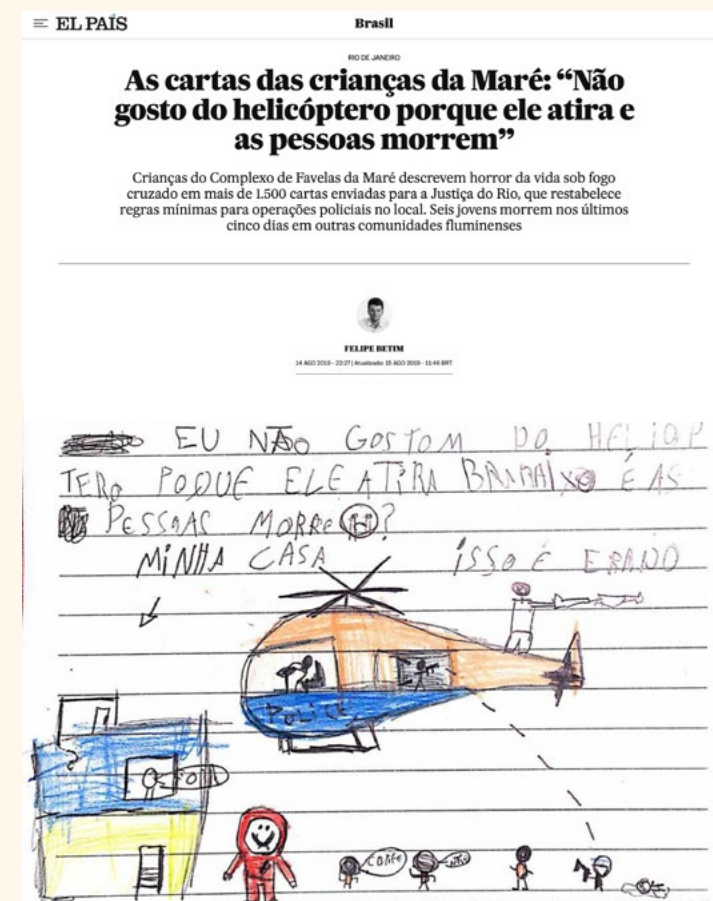 EL PAÍS
Brasil
RIO DE JANEIRO
As cartas das crianças da Maré: “Não
gosto do helicóptero porque ele atira e
as pessoas morrem”
Crianças do Complexo de Favelas da Maré descrevem horror da vida sob fogo
cruzado em mais de 1.500 cartas enviadas para a Justiça do Rio, que restabelece
regras mínimas para operações policiais no local. Seis jovens morrem nos últimos
cinco dias em outras comunidades fluminenses
FELIPE BETIM
14 AGO 2019 - 23:27 | Atualizado: 15 AGO 2019 - 11:46 BRT
EU NÃO GOSTOM DO HELIOP
TERO POQUE ELE ATIRA É AS
PESSOAS MORRE?
MINHA CASA ISSO É ERADO
POLICE
CORRE